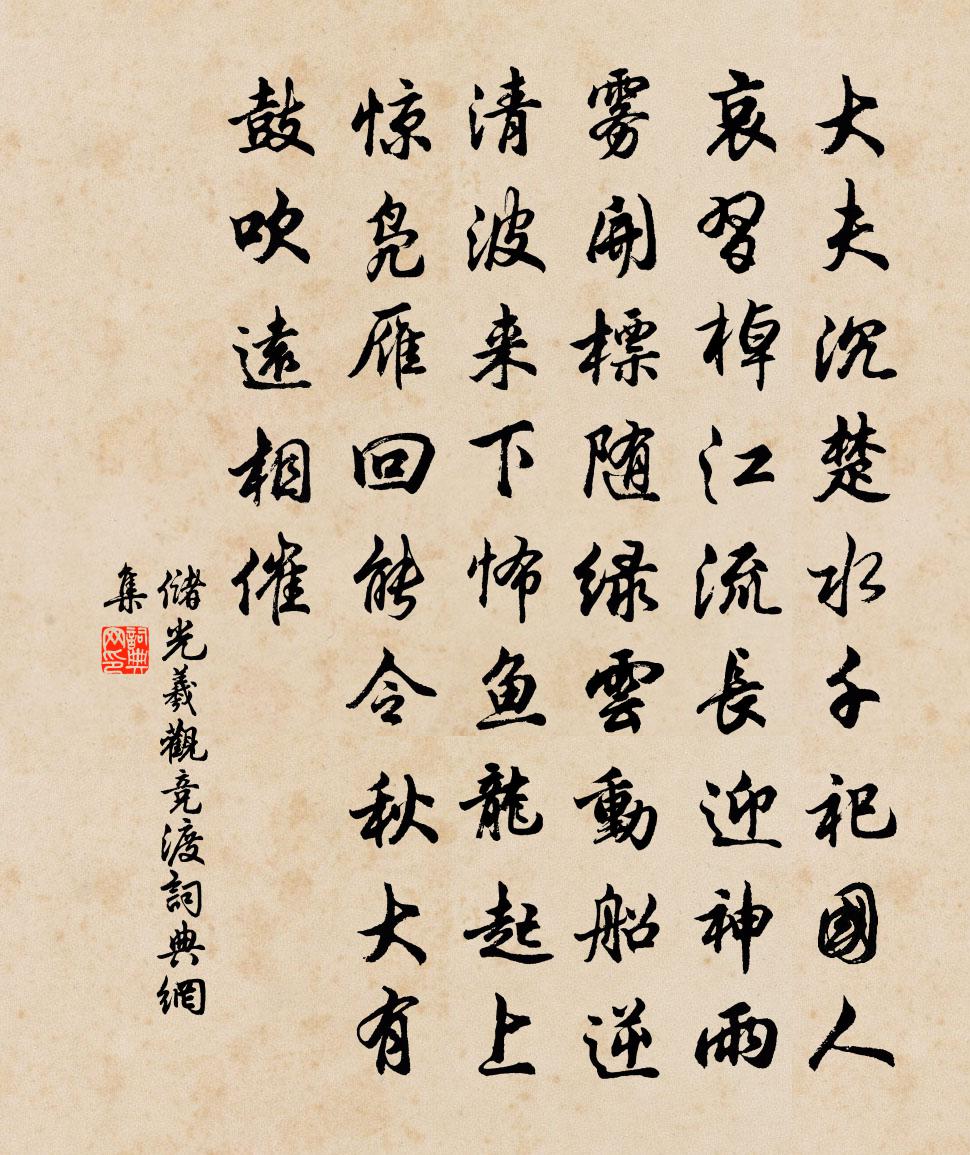 大夫沉楚水千祀國人
哀習棹江流長迎神雨
雾開標随緑雲動船逆
清波来下怖魚龍起上
惊凫雁回能令秋大有
鼓吹遠相催
儲光羲觀竞渡詞典網
集
詞典网印